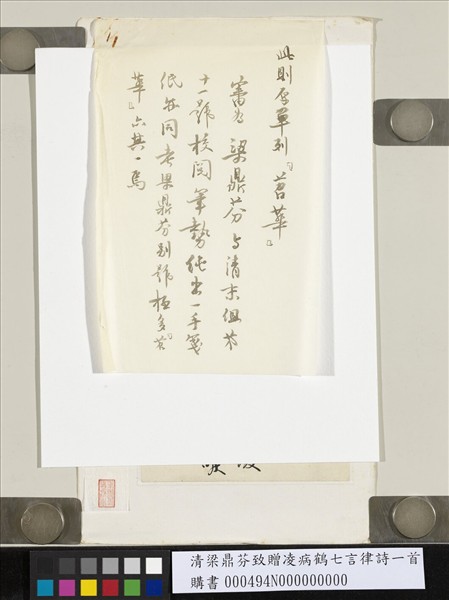 此則原草列「苕華」
審為梁鼎芬與清末但
十一號校閱筆勢純出一手箋
紙亦同未梁鼎芬別號極多「苕
華」亦其一焉
清梁鼎芬致贈凌病鶴七言律詩一首
購書 000494N000000000